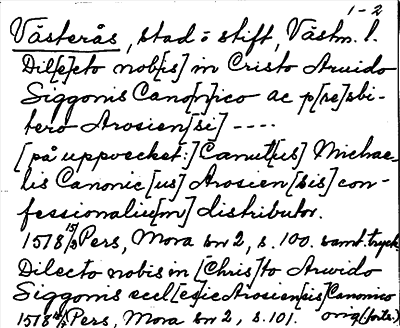 1-2
Västerås, stad o stift, Västm. l.
Dil[e]cto nob[is] in Cristo Arvido
Siggonis Cano[n]ico ac p[re]sbi-
tero Arosien[si] ----
[på uppvecket:] Canut[us] Michae-
lis Canonic[us] Arosien[sis] con-
fessionaliu[m] distributor.
1518 15/3 Pers, Mora sn 2, s. 100. samt. tryck
Dilecto nobis in [Chris]to Arwido
Siggonis eccl[es]ie Arosien[sis] Canonico
1518 Pers, Mora sn 2, s. 101. orig (forts.)